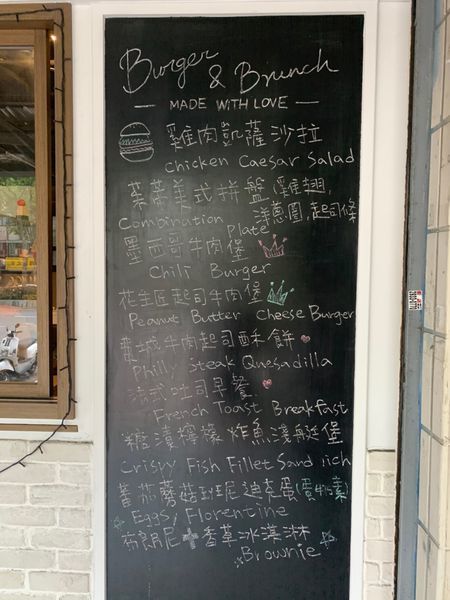 Burger
& Brunch
MADE WITH LOVE
雞肉凱薩沙拉
Chicken Caesar Salad
美式拼盤(雞翅,
洋蔥圈,起司條
Combination Plate
墨西哥牛肉堡
Chili Burger
花生匠起司牛肉堡
Peanut Butter Cheese Burger
費城牛肉起司酥餅
Philly Steak Quesadilla
法式吐司早餐
French Toast Breakfast
糖漬檸檬炸魚淺艇堡
Crispy Fish Fillet Sandwich
番茄蘑菇班尼迪克蛋(蛋奶素)
Eggs Florentine
布朗尼+香草冰淇淋
Brownie